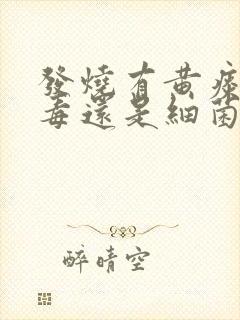 發燒有黃痰
毒還是細菌
醉晴空